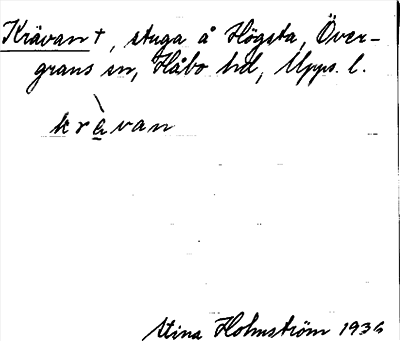 Krävan †, stuga å Högsta, Över-
grans sn, Håbo hd, Upps. l.
kràvan
Stina Holmström 1936